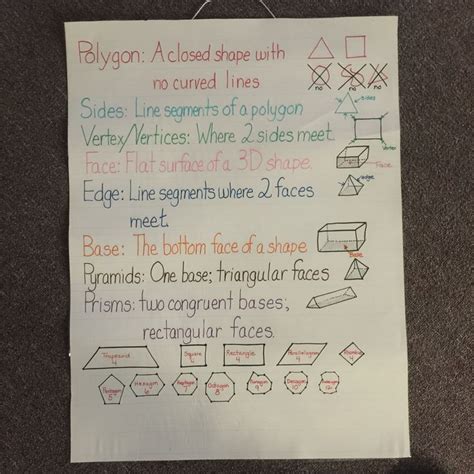 Polygon: A closed shape with
no curved lines
no no no
Sides: Line segments of a polygon
sides
Vertex/Vertices: Where 2 sides meet.
vertex
Face: Flat surface of a 3D shape.
Face
Edge: Line segments where 2 faces
meet.
edge
Base: The bottom face of a shape
Base
Pyramids: One base; triangular faces
Prisms: two congruent bases;
rectangular faces.
Trapezoid 4
Square 4
Rectangle 4
Parallelogram 4
Rhombus 4
Pentagon 5
Hexagon 6
Heptagon 7
Octogon 8
Nonagon 9
Decagon 10
12